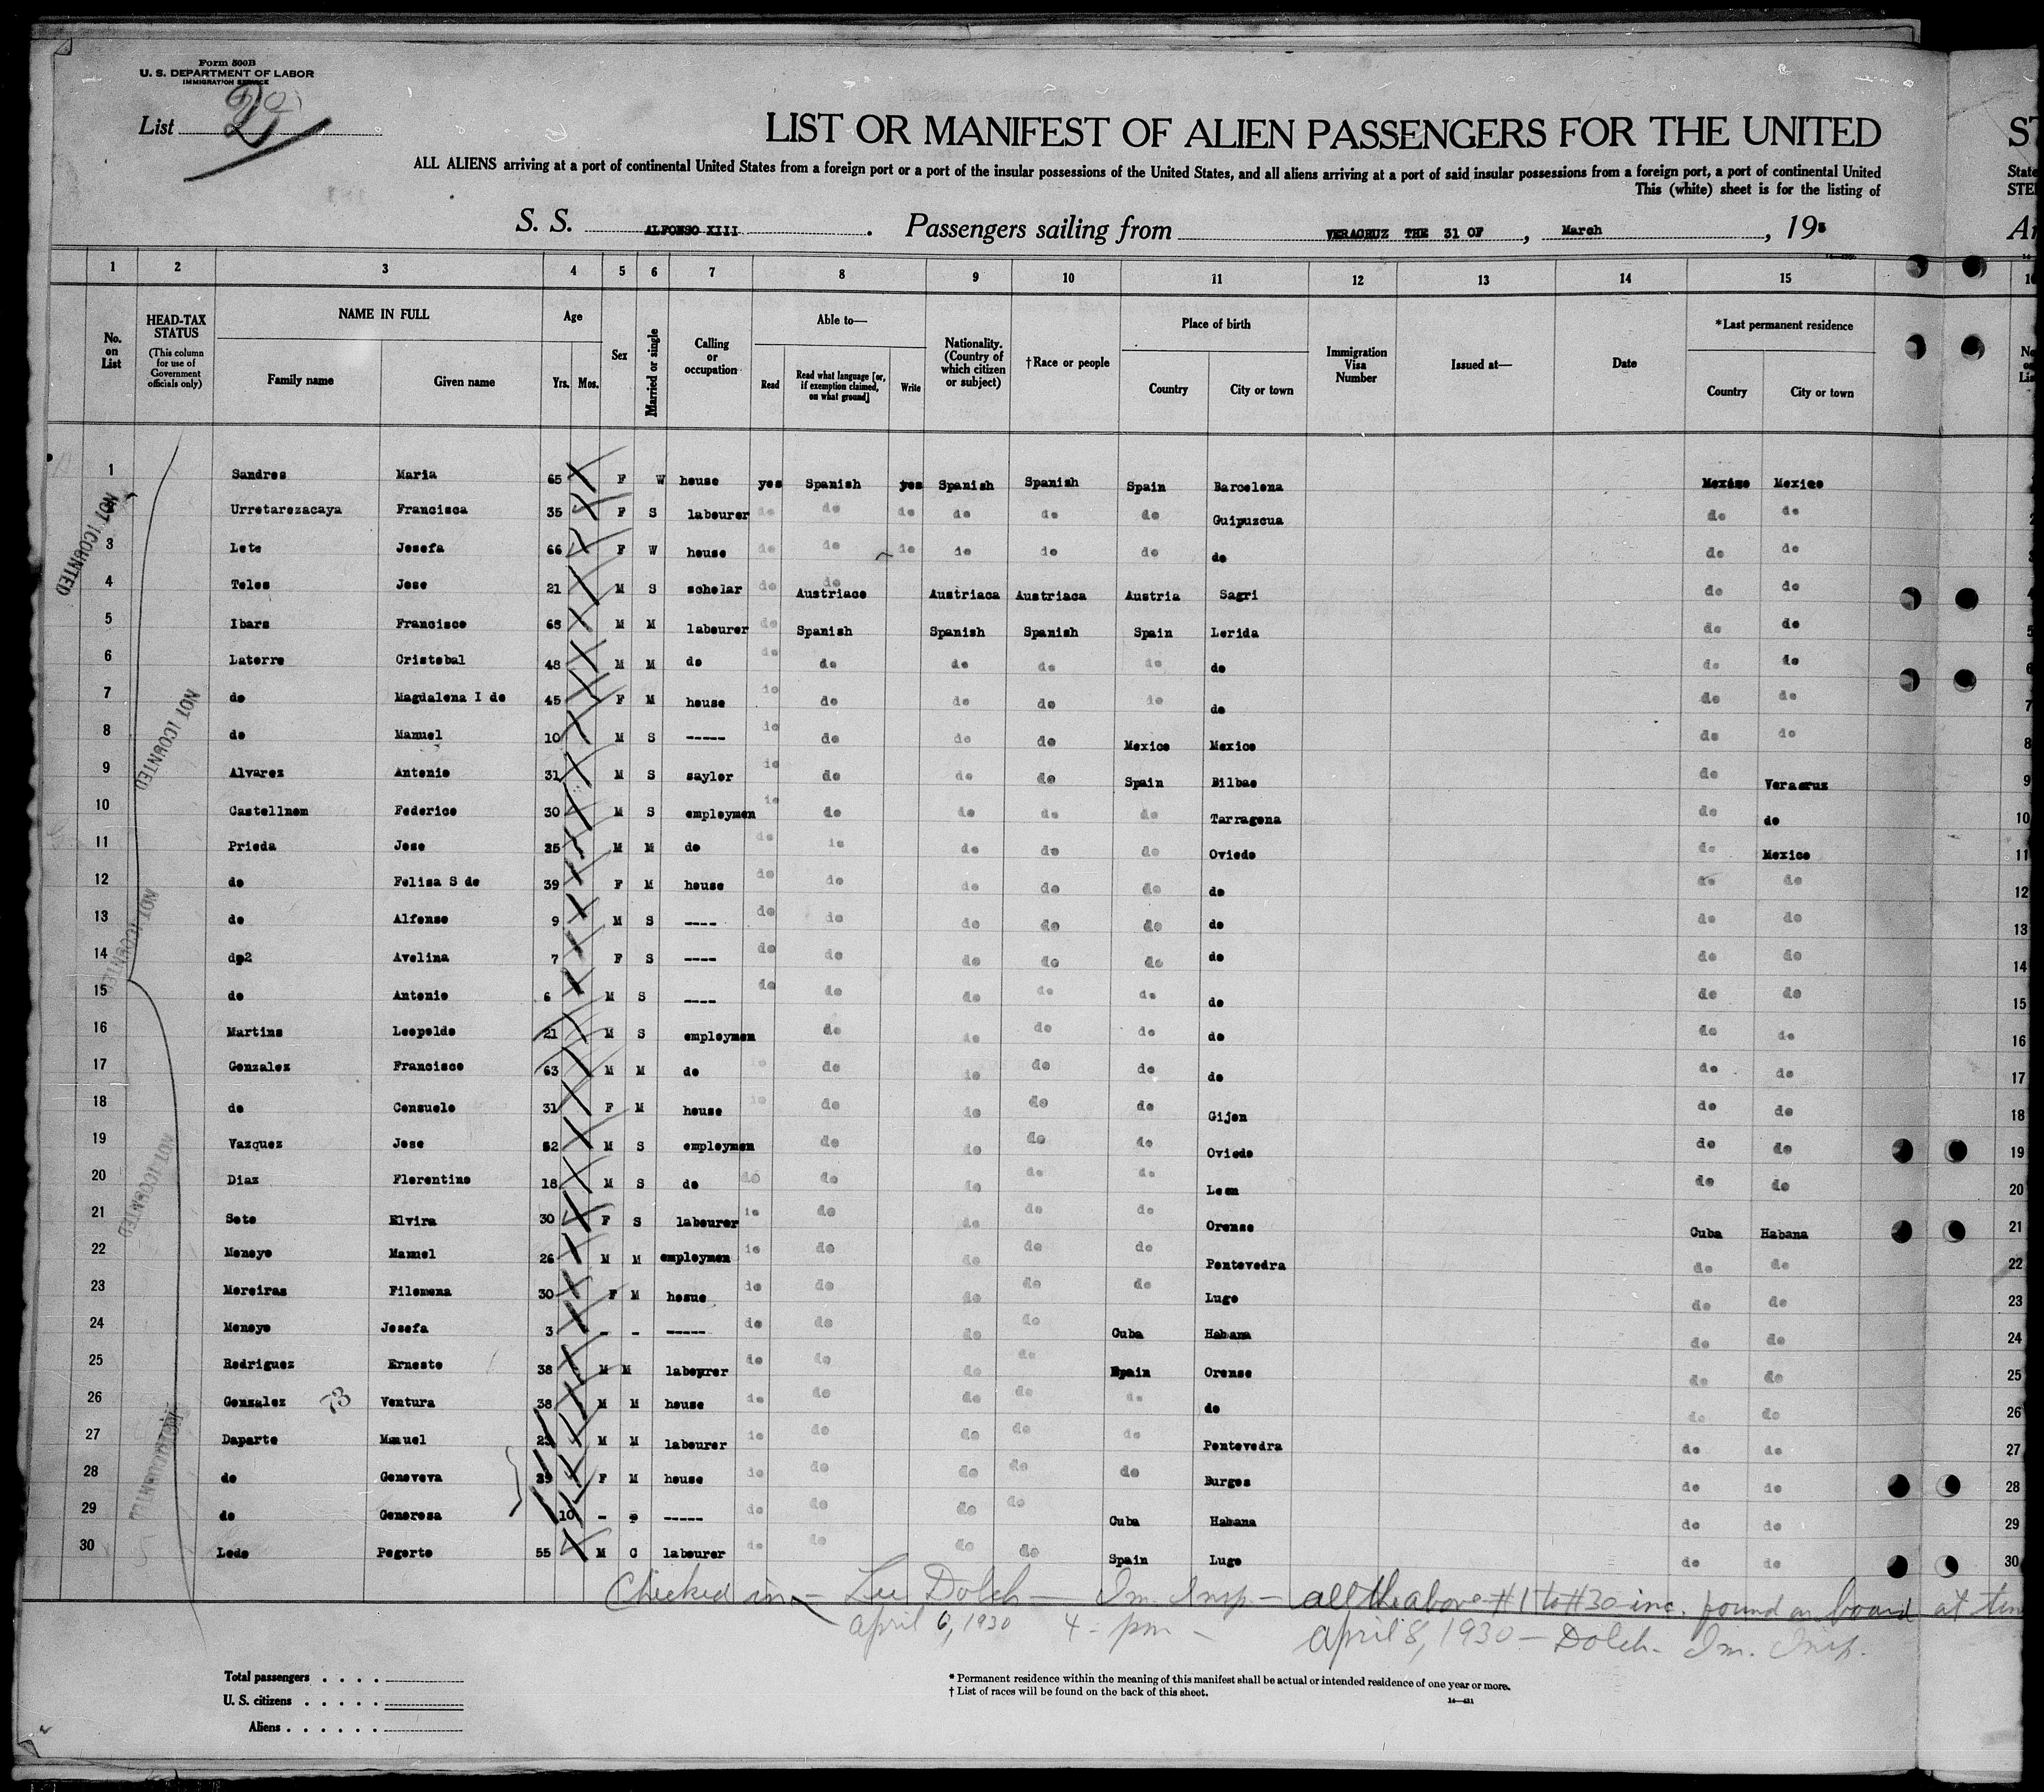 Form 500B
U. S. DEPARTMENT OF LABOR
IMMIGRATION SERVICE
List
LIST OR MANIFEST OF ALIEN PASSENGERS FOR THE UNITED ST
ALL ALIENS arriving at a port of continental United States from a foreign port or a port of the insular possessions of the United States, and all aliens arriving at a port of said insular possessions from a foreign port, a port of continental United State
This (white) sheet is for the listing of STE
S. S. ALFONSO XIII. Passengers sailing from VERACRUZ THE 31 OF, March, 193
1 2 3 4 5 6 7 8 9 10 11 12 13 14 15
No. on List
HEAD-TAX STATUS
(This column for use of Government officials only)
NAME IN FULL
Family name Given name
Age
Yrs. Mos.
Sex
Married or single
Calling or occupation
Able to—
Read
Read what language [or, if exemption claimed, on what ground]
Write
Nationality. (Country of which citizen or subject)
†Race or people
Place of birth
Country City or town
Immigration Visa Number
Issued at—
Date
*Last permanent residence
Country City or town
1 Sandres Maria 65 F W house yes Spanish yes Spanish Spanish Spain Barcelona Mexico Mexico
Urretarezacaya Francisca 35 F S labourer do do do do do do Guipuzcua do do 
3 Lete Josefa 66 F W house do do do do do do do do do
4 Teles Jose 21 M S scholar do do Austriaco Austriaca Austriaca Austria Sagri do do
5 Ibars Francisco 68 M M labourer do Spanish Spanish Spanish Spain Lerida do do
6 Laterre Cristobal 48 M M do do do do do do do do do
7 do Magdalena I de 45 F M house do do do do do do do do
8 do Manuel 10 M S ----- do do do do Mexico Mexico do do
9 Alvarez Antonio 31 M S sayler do do do do Spain Bilbao do Veracruz
10 Castellnem Federico 30 M S employmen do do do do do Tarragona do do
11 Prieda Jose 35 M M do do do do do do Oviedo do Mexico
12 do Felisa S de 39 F M house do do do do do do do do
13 do Alfonso 9 M S ---- do do do do do do do do
14 do2 Avelina 7 F S ---- do do do do do do do do
15 do Antonio 6 M S ---- do do do do do do do do
16 Martins Leopoldo 21 M S employmen do do do do do do do
17 Gonzalez Francisco 63 M M do do do do do do do do do
18 do Consuelo 31 F M house do do do do do Gijon do do
19 Vazquez Jose 52 M S employmen do do do do Oviedo do do
20 Diaz Florentino 18 M S do do do do do do Leon do do
21 Soto Elvira 30 F S labourer do do do do do Orense Cuba Habana
22 Meneyo Manuel 26 M M employmen do do do do do Pontevedra do do
23 Mereiras Filomena 30 F M hosue do do do do do Lugo do do
24 Meneyo Josefa 3 - - ----- do do do do Cuba Habana do do
25 Rodriguez Ernesto 38 M M labourer do do do do Spain Orense do do
26 Gonzalez 73 Ventura 38 M M house do do do do do do do do
27 Daparte Manuel M M labourer do do do do do Pontevedra do do
28 do Genoveva F M house do do do do do Burgos do do
29 do Generosa 10 - ----- do do do do Cuba Habana do do
30 Ledo Pegerto 55 M C labourer do do do do Spain Lugo do do
NOT ICOUNTED
NOT ICOUNTED
NOT ICOUNTED
NOT ICOUNTED
Checked in — Lee Dolch — Im. Insp. — all the above #1 to #30 inc. found on board at
april 6, 1930 4 - pm — april 8, 1930 — Dolch. Im. Insp.
Total passengers
U. S. citizens
Aliens
* Permanent residence within the meaning of this manifest shall be actual or intended residence of one year or more.
† List of races will be found on the back of this sheet.
14—431